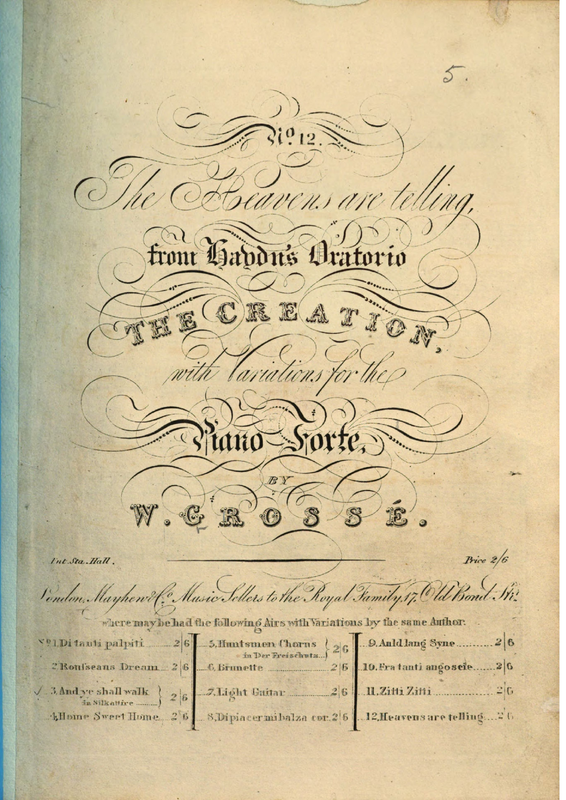 5.
No. 12.
The Heavens are telling,
from Haydn's Oratorio
THE CREATION,
with Variations for the
Piano Forte,
BY
W. GROSSÉ.
Ent. Sta. Hall.
Price 2/6
London, Mayhew & Co. Music Sellers to the Royal Family, 17, Old Bond Str.
where may be had the following Airs with Variations by the same Author.
No. 1. Di tanti palpiti 2|6
2. Rousseaus Dream 2|6
3. And ye shall walk
in Silk attire 2|6
4. Home Sweet Home 2|6
5. Huntsmen Chorus
in Der Freischutz 2|6
6. Brunette 2|6
7. Light Guitar 2|6
8. Di piacer mi balza cor. 2|6
9. Auld lang Syne 2|6
10. Fra tanti angoscie 2|6
11. Zitti Zitti 2|6
12. Heavens are telling 2|6